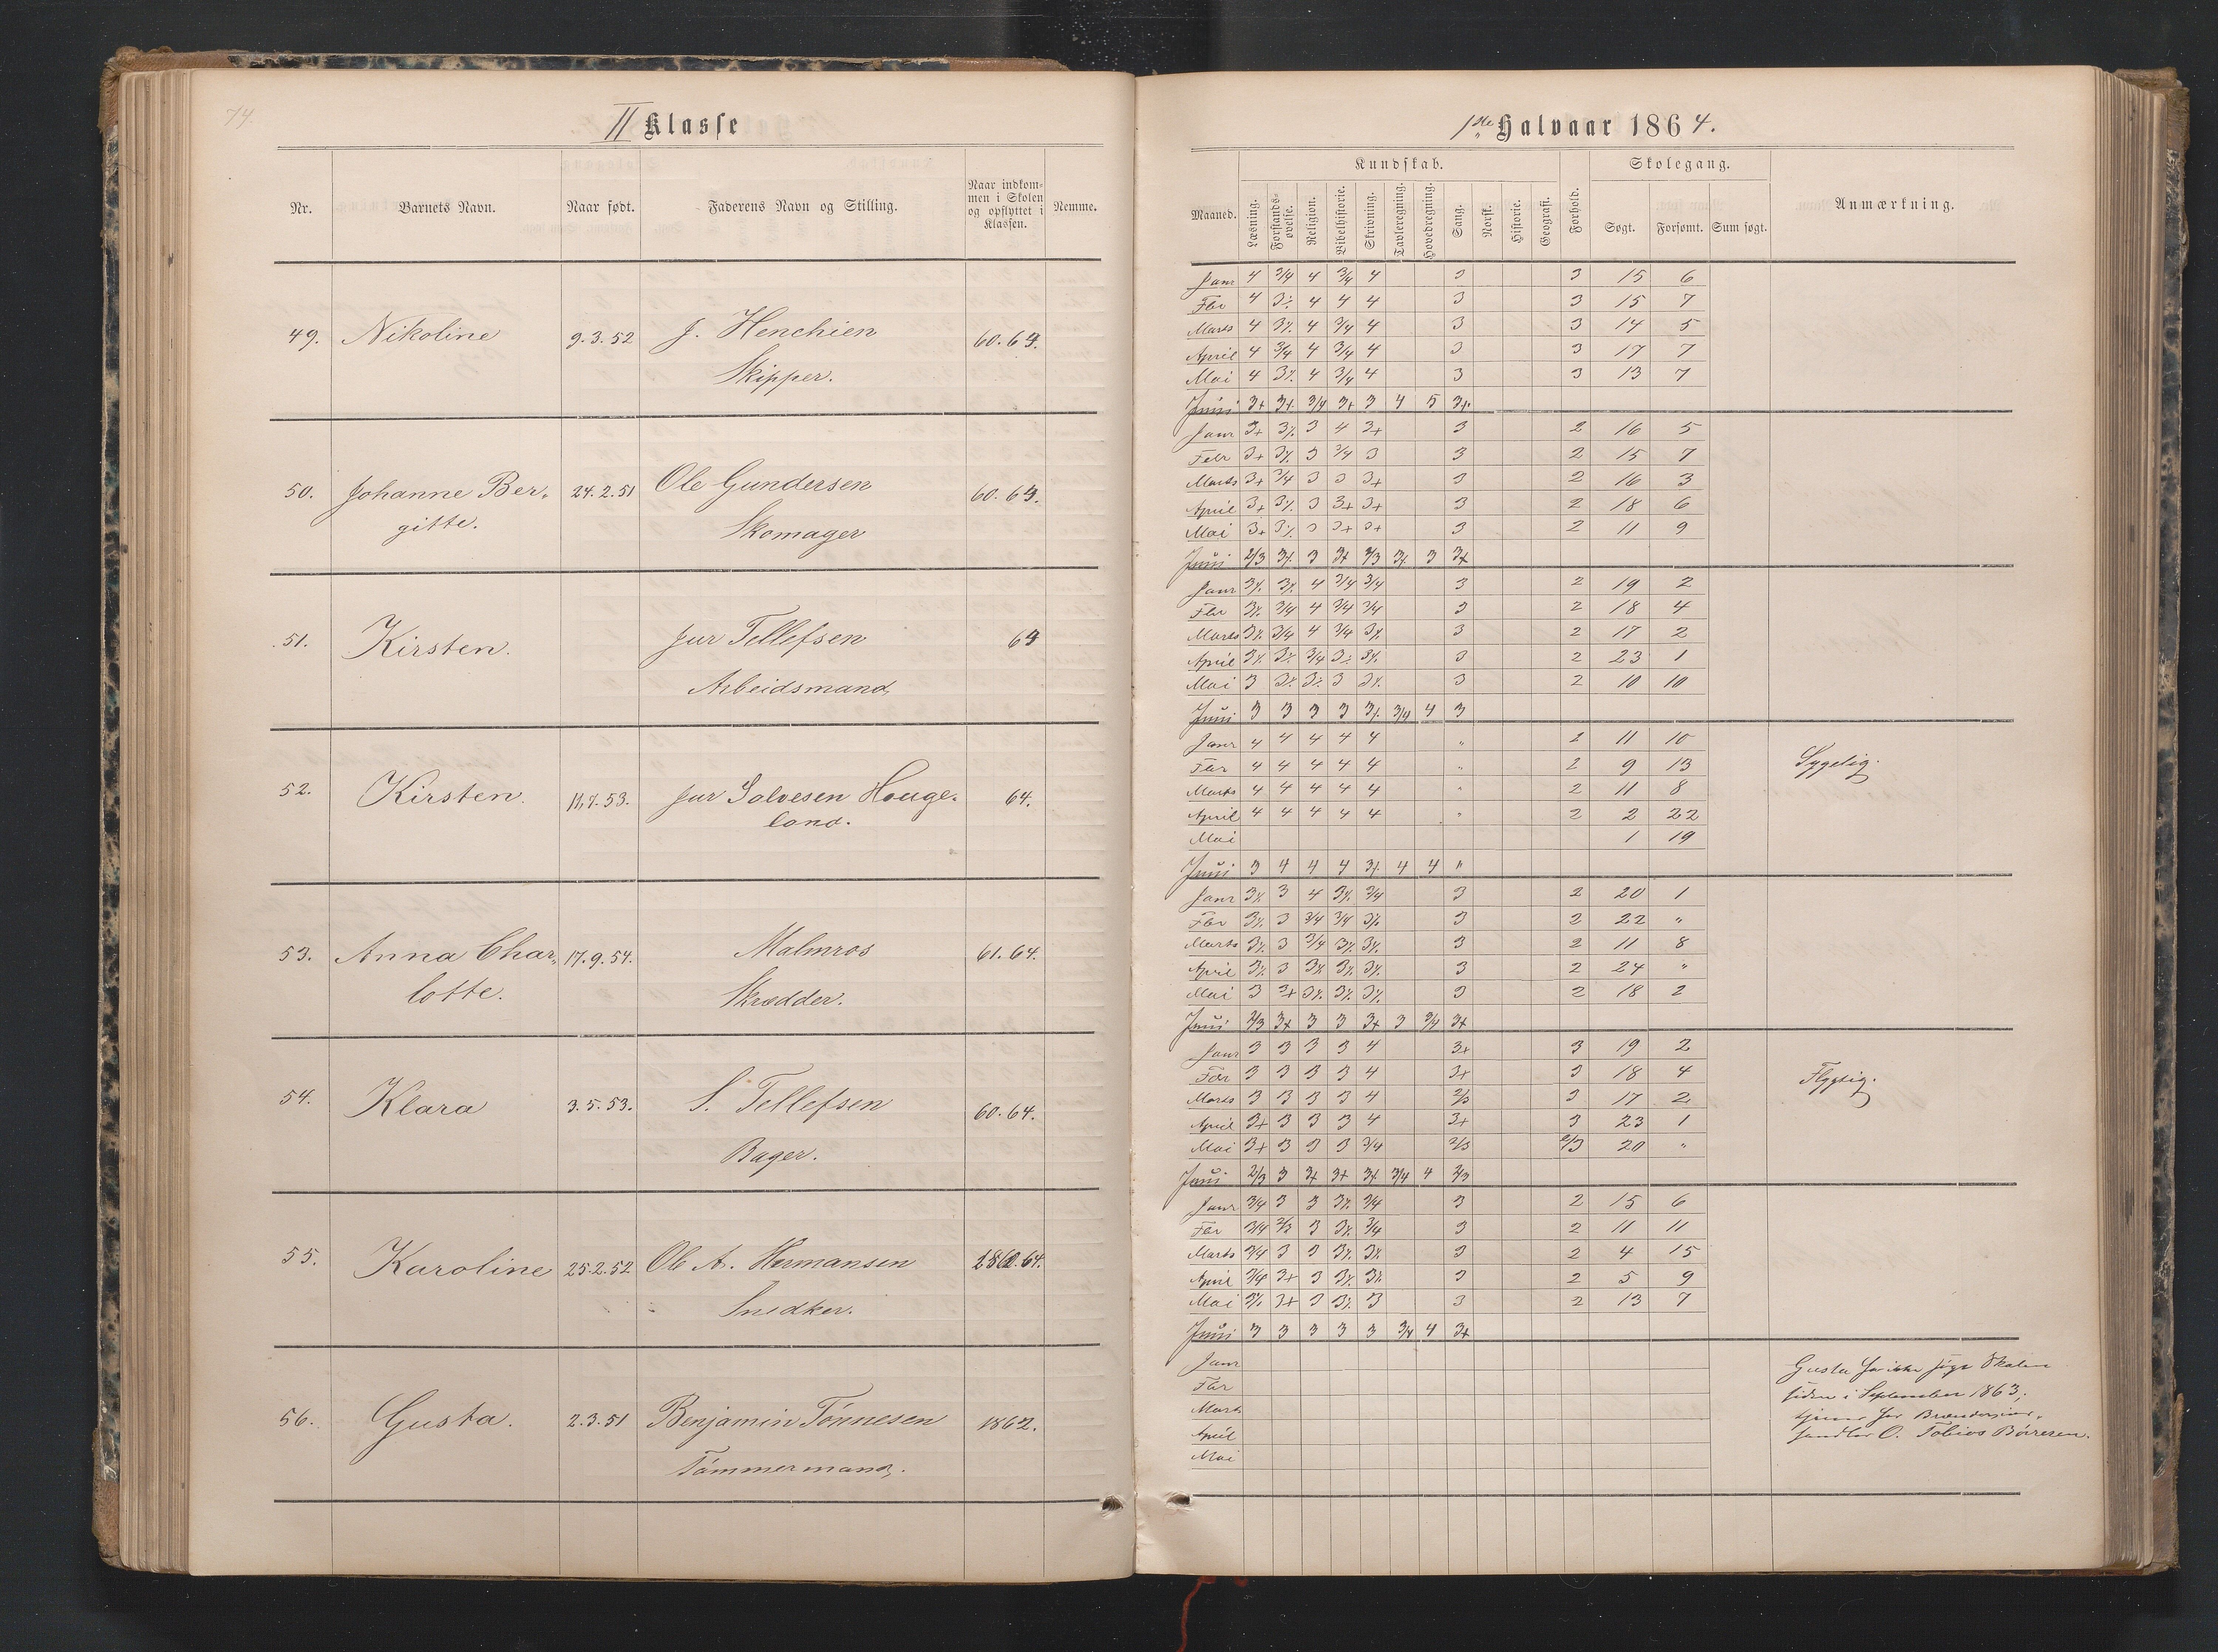 74.
II Klasse
Nr. Barnets Navn. Naar født. Faderens Navn og Stilling. Naar indkommen i Skolen og opflyttet i Klassen. Nemme.
49. Nikoline 9.3.52 J. Henchien 60.64.
Skipper.
50. Johanne Ber- 24.2.51 Ole Gundersen 60.64.
gitte. Skomager
51. Kirsten. Jur Tellefsen 64
Arbeidsmand
52. Kirsten. 11.7.53. Jur Solvesen Houge- 64.
land.
53. Anna Char- 17.9.54. Malmros 61.64.
lotte. Skrædder.
54. Klara 3.5.53. S. Tellefsen 60.64.
Bager.
55. Karoline 25.2.52 Ole A. Hermansen 64.
Snedker.
56. Gusta. 2.3.51 Benjamin Tønnesen 1862.
Tømmermand.
1ste Halvaar 1864.
Kundskab. Skolegang.
Maaned. Læsning. Forstands-øvelse. Religion. Bibelhistorie. Skrivning. Tavleregning. Hovedregning. Sang. Norsk. Historie. Geografi. Forhold. Søgt. Forsømt. Sum søgt. Anmærkning.
Janr 4 3/4 4 3/4 4 3 3 15 6
Fbr 4 3÷ 4 4 4 3 3 15 7
Marts 4 3÷ 4 3/4 4 3 3 14 5
April 4 3/4 4 3/4 4 3 3 17 7
Mai 4 3÷ 4 3/4 4 3 3 13 7
Juni 3+ 3+ 3/4 3+ 3 4 5 3+
Janr 3+ 3÷ 3 4 3+ 3 2 16 5
Febr 3+ 3÷ 3 3/4 3 3 2 15 7
Marts 3+ 3/4 3 3 3+ 3 2 16 3
April 3+ 3÷ 3 3+ 3+ 3 2 18 6
Mai 3+ 3÷ 3 3+ 3+ 3 2 11 9
Juni 2/3 3÷ 3 3+ 2/3 3÷ 3 3+
Janr 3÷ 3÷ 4 3/4 3/4 3 2 19 2
Fbr 3÷ 3/4 4 3/4 3/4 3 2 18 4
Marts 3÷ 3/4 4 3/4 3÷ 3 2 17 2
April 3÷ 3÷ 3/4 3÷ 3÷ 3 2 23 1
Mai 3 3÷ 3÷ 3 3÷ 3 2 10 10
Juni 3 3 3 3 3÷ 3/4 4 3
Janr 4 4 4 4 4 " 2 11 10
Fbr 4 4 4 4 4 " 2 9 13 Sygelig.
Marts 4 4 4 4 4 " 2 11 8
April 4 4 4 4 4 " 2 2 22
Mai 1 19
Juni 3 4 4 4 3÷ 4 4 "
Janr 3÷ 3 4 3÷ 3/4 3 2 20 1
Fbr 3÷ 3 3/4 3/4 3÷ 3 2 22 "
Marts 3÷ 3 3/4 3÷ 3÷ 3 2 11 8
April 3÷ 3 3÷ 3÷ 3÷ 3 2 24 "
Mai 3 3+ 3÷ 3÷ 3÷ 3 2 18 2
Juni 2/3 3+ 3 3 3+ 3 3/4 3+
Janr 3 3 3 3 4 3+ 3 19 2
Fbr 3 3 3 3 4 3+ 3 18 4 Flygtig.
Marts 3 3 3 3 4 2/3 3 17 2
April 3+ 3 3 3 4 3+ 3 23 1
Mai 3+ 3 3 3 3/4 2/3 2/3 20 "
Juni 2/3 3 3+ 3+ 3+ 3/4 4 2/3
Janr 3/4 3 3 3÷ 3/4 3 2 15 6
Fbr 3/4 2/3 3 3÷ 3/4 3 2 11 11
Marts 3/4 3 3 3÷ 3÷ 3 2 4 15
April 3/4 3+ 3 3÷ 3÷ 3 2 5 9
Mai 3÷ 3+ 3 3÷ 3 3 2 13 7
Juni 3 3 3 3 3 3/4 4 3+
Janr
Fbr
Marts
April
Mai
Gusta har ikke søgt Skolen
siden i September 1863;
tjener hos Brændeviins-
handler O. Tobias Børresen.